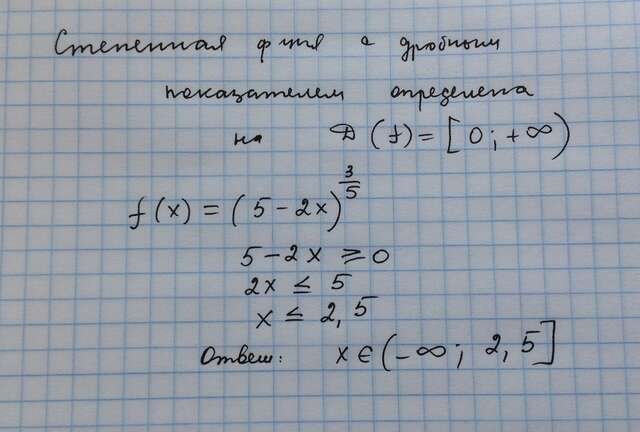 Степенная ф-ция с дробным
показателем определена
на D(f) = [0; +∞)
f(x) = (5 - 2x)^(3/5)
5 - 2x ≥ 0
2x ≤ 5
x ≤ 2,5
Ответ: x ∈ (-∞; 2,5]